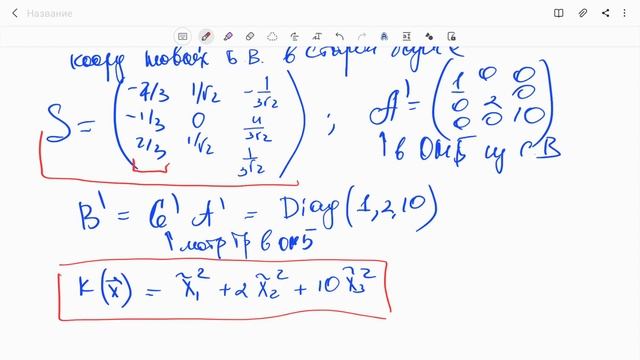 Название
коорд новых б в. в старом базисе
S = ( -2/3 1/√2 -1/3√2 ; -1/3 0 4/3√2 ; 2/3 1/√2 1/3√2 ) ; A' = ( 1 0 0 ; 0 2 0 ; 0 0 10 )
↑ в ОНБ из с В
B' = G' A' = Diag(1, 2, 10)
↑ матр Гр в онб
K(x⃗) = x̃₁² + 2x̃₂² + 10x̃₃²